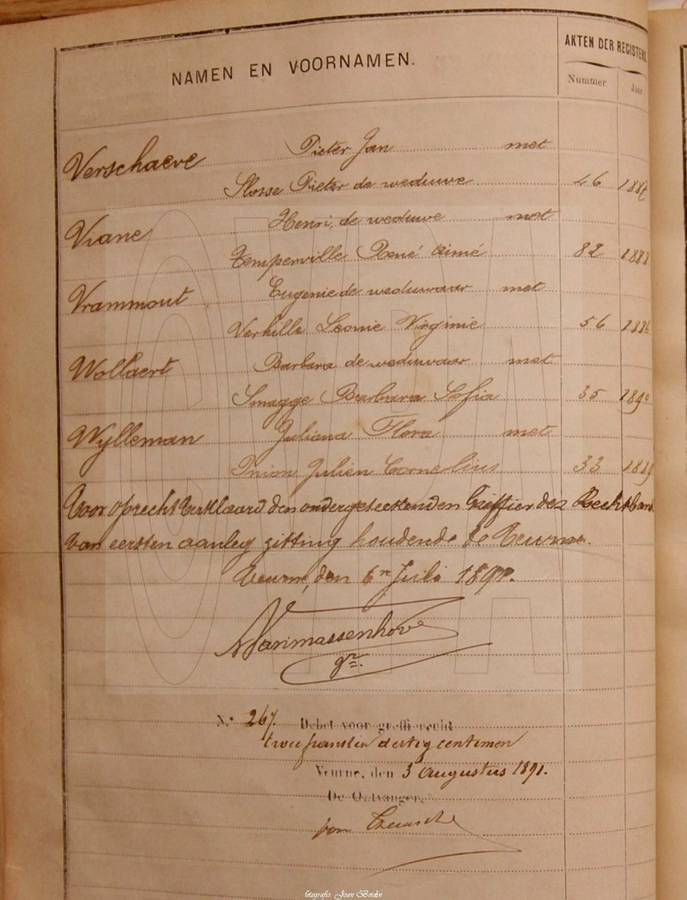 NAMEN EN VOORNAMEN.
AKTEN DER REGISTERS
Nummer
Verschaeve Pieter Jan met
Slosse Pieter de weduwe 46 1887
Viane Henri de weduwe met
Temperville René Aimé 82 1888
Vrammout Eugenie de weduwaar met
Verhille Leonie Virginie 56 1886
Wollaert Barbara de weduwaar met
Smagge Barbara Sofia 35
Wylleman Juliana Flora met
Julien Cornelius 33
Voor oprecht verklaard den ondergeteekenden Griffier der Rechtbank
van eersten aanleg zitting houdende te Veurne.
Veurne, den 6n Juli
Vanmassenhove
gr.
N. 267. Debet voor greffi recht
twee franken dertig centimen
Veurne, den 3 augustus 1891.
De Ontvanger,
fotografie: Joan Borke